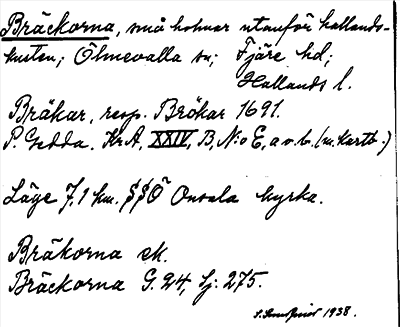 Bräckorna, små holmar utanför hallands-
kusten; Ölmevalla sn; Fjäre hd;
Hallands l.
Bräkar, resp. Brökar 1691.
P. Gedda. Kr A, XXIV, B, N:o E, a v. b. (m. kartb.)
Läge 7,1 km. SSÖ Onsala kyrka.
Bräkorna ek.
Bräckorna G. 24, Sj: 275.
1938.